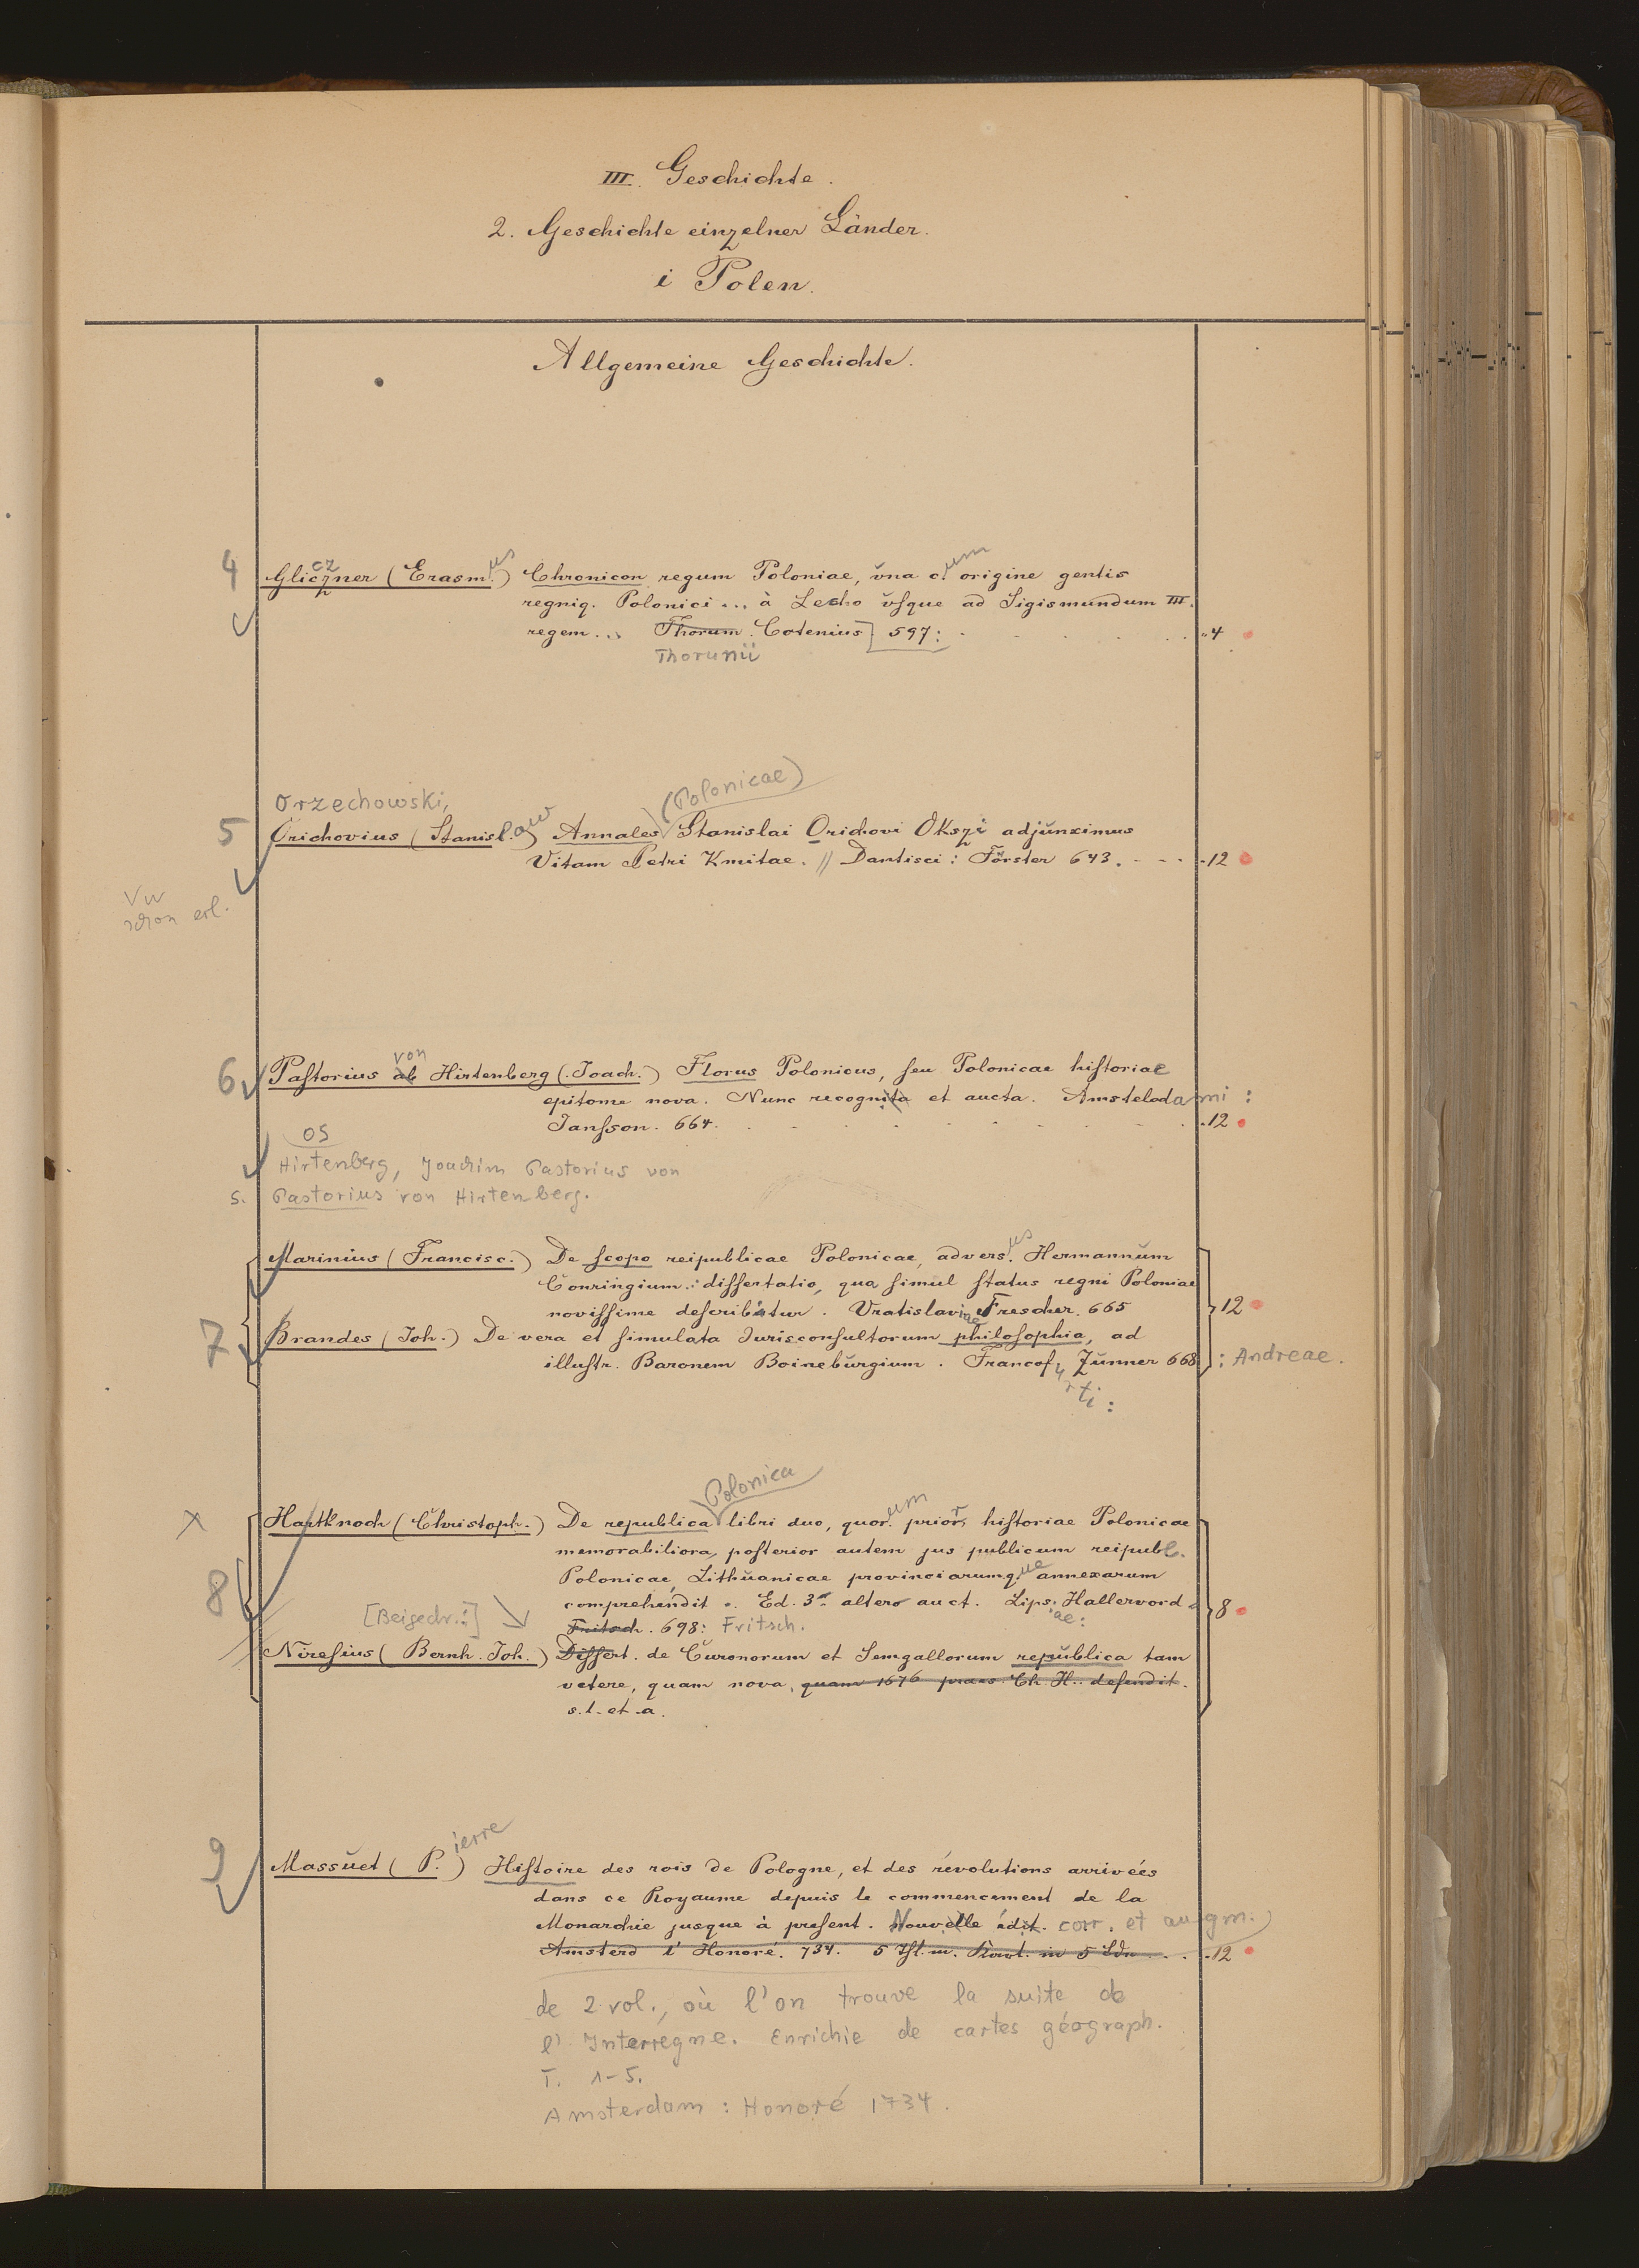 III. Geschichte.
2. Geschichte einzelner Länder.
i Polen.
Allgemeine Geschichte.
4 Gliczner (Erasm.us) Chronicon regum Poloniae, vna c.um origine gentis
regniq. Polonici ... à Lecho vsque ad Sigismundum III.
regem... Thorum. Cotenius] 597: 4
Thorunii
(Polonicae)
Orzechowski,
5 Orichovius (Stanisl.aw) Annales Stanislai Orichovi Okszi adjunximus
Vitam Petri Kmitae. // Dantisci: Förster 643. 12
Vw
schon erl.
von
6 Pastorius ab Hirtenberg (Joach.) Florus Polonicus, seu Polonicae historiae
epitome nova. Nunc recognita et aucta. Amstelodami:
Jansson. 664. 12
OS
Hirtenberg, Joachim Pastorius von
s. Pastorius von Hirtenberg.
Marinius (Francisc.) De scopo reipublicae Polonicae, advers.us Hermannum
Conringium: dissertatio, qua simul status regni Poloniae
novissime describitur. Vratislaviae Trescher. 665 12
7 Brandes (Joh.) De vera et simulata Jurisconsultorum philosophia, ad
illustr. Baronem Boineburgium. Francof. Zunner 668 : Andreae.
urti:
Polonica
x Hartknoch (Christoph.) De republica libri duo, quor.um prior, historiae Polonicae
memorabiliora, posterior autem jus publicum reipubl.
Polonicae, Lithuanicae provinciarumq.ue annexarum
8 comprehendit. Ed. 3a altero auct. Lips.iae: Hallervord 8
[Beigedr.:] Fritsch. 698: Fritsch.
Niresius (Bernh. Joh.) Dissert. de Curonorum et Semgallorum republica tam
vetere, quam nova, quam 1676 praes. Ch. H.. defendit.
s. l. et a.
9 Massuet (P.ierre) Histoire des rois de Pologne, et des révolutions arrivées
dans ce Royaume depuis le commencement de la
Monarchie jusque à present. Nouvelle édit. corr. et augm.
Amsterd l'Honoré. 734. 12
de 2 vol., où l'on trouve la suite de
l'Interregne. Enrichie de cartes géograph.
T. 1-5.
Amsterdam: Honoré 1734.